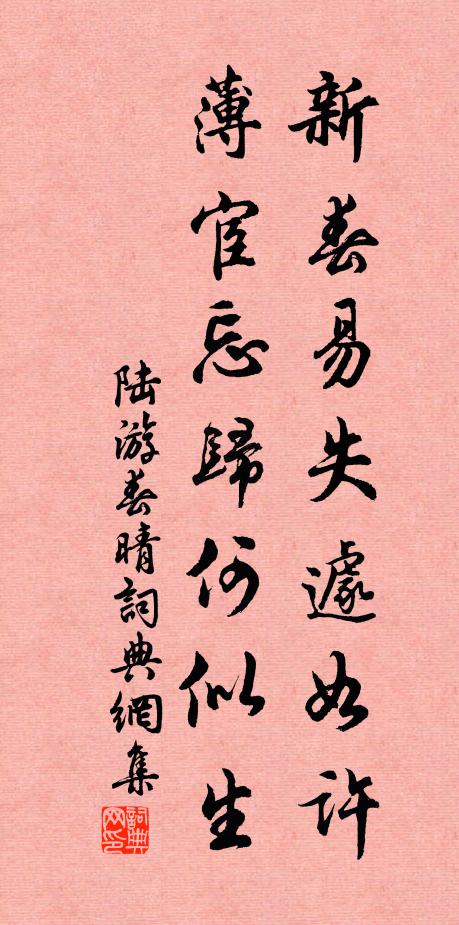 新春易失遽如許
薄宦忘歸何似生
陆游春晴詞典網集
詞典网印